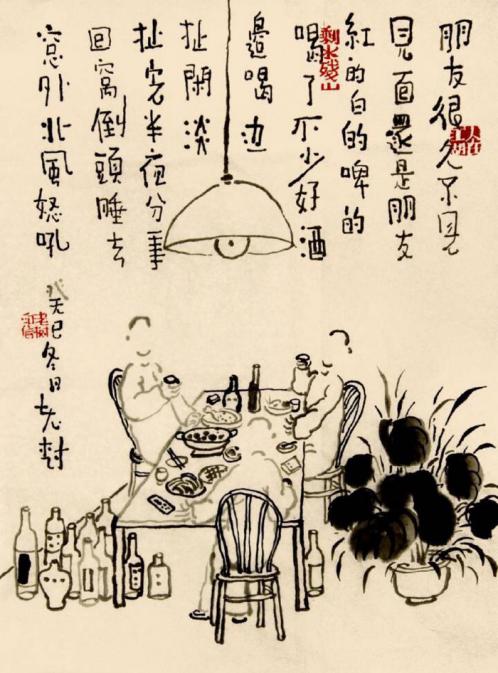 朋友很久不見
見面還是朋友
紅的白的啤的
喝了不少好酒
邊喝边
扯閑淡
扯完半夜分手
回窩倒頭睡去
窓外北風怒吼
癸巳冬日老树
剩水殘山